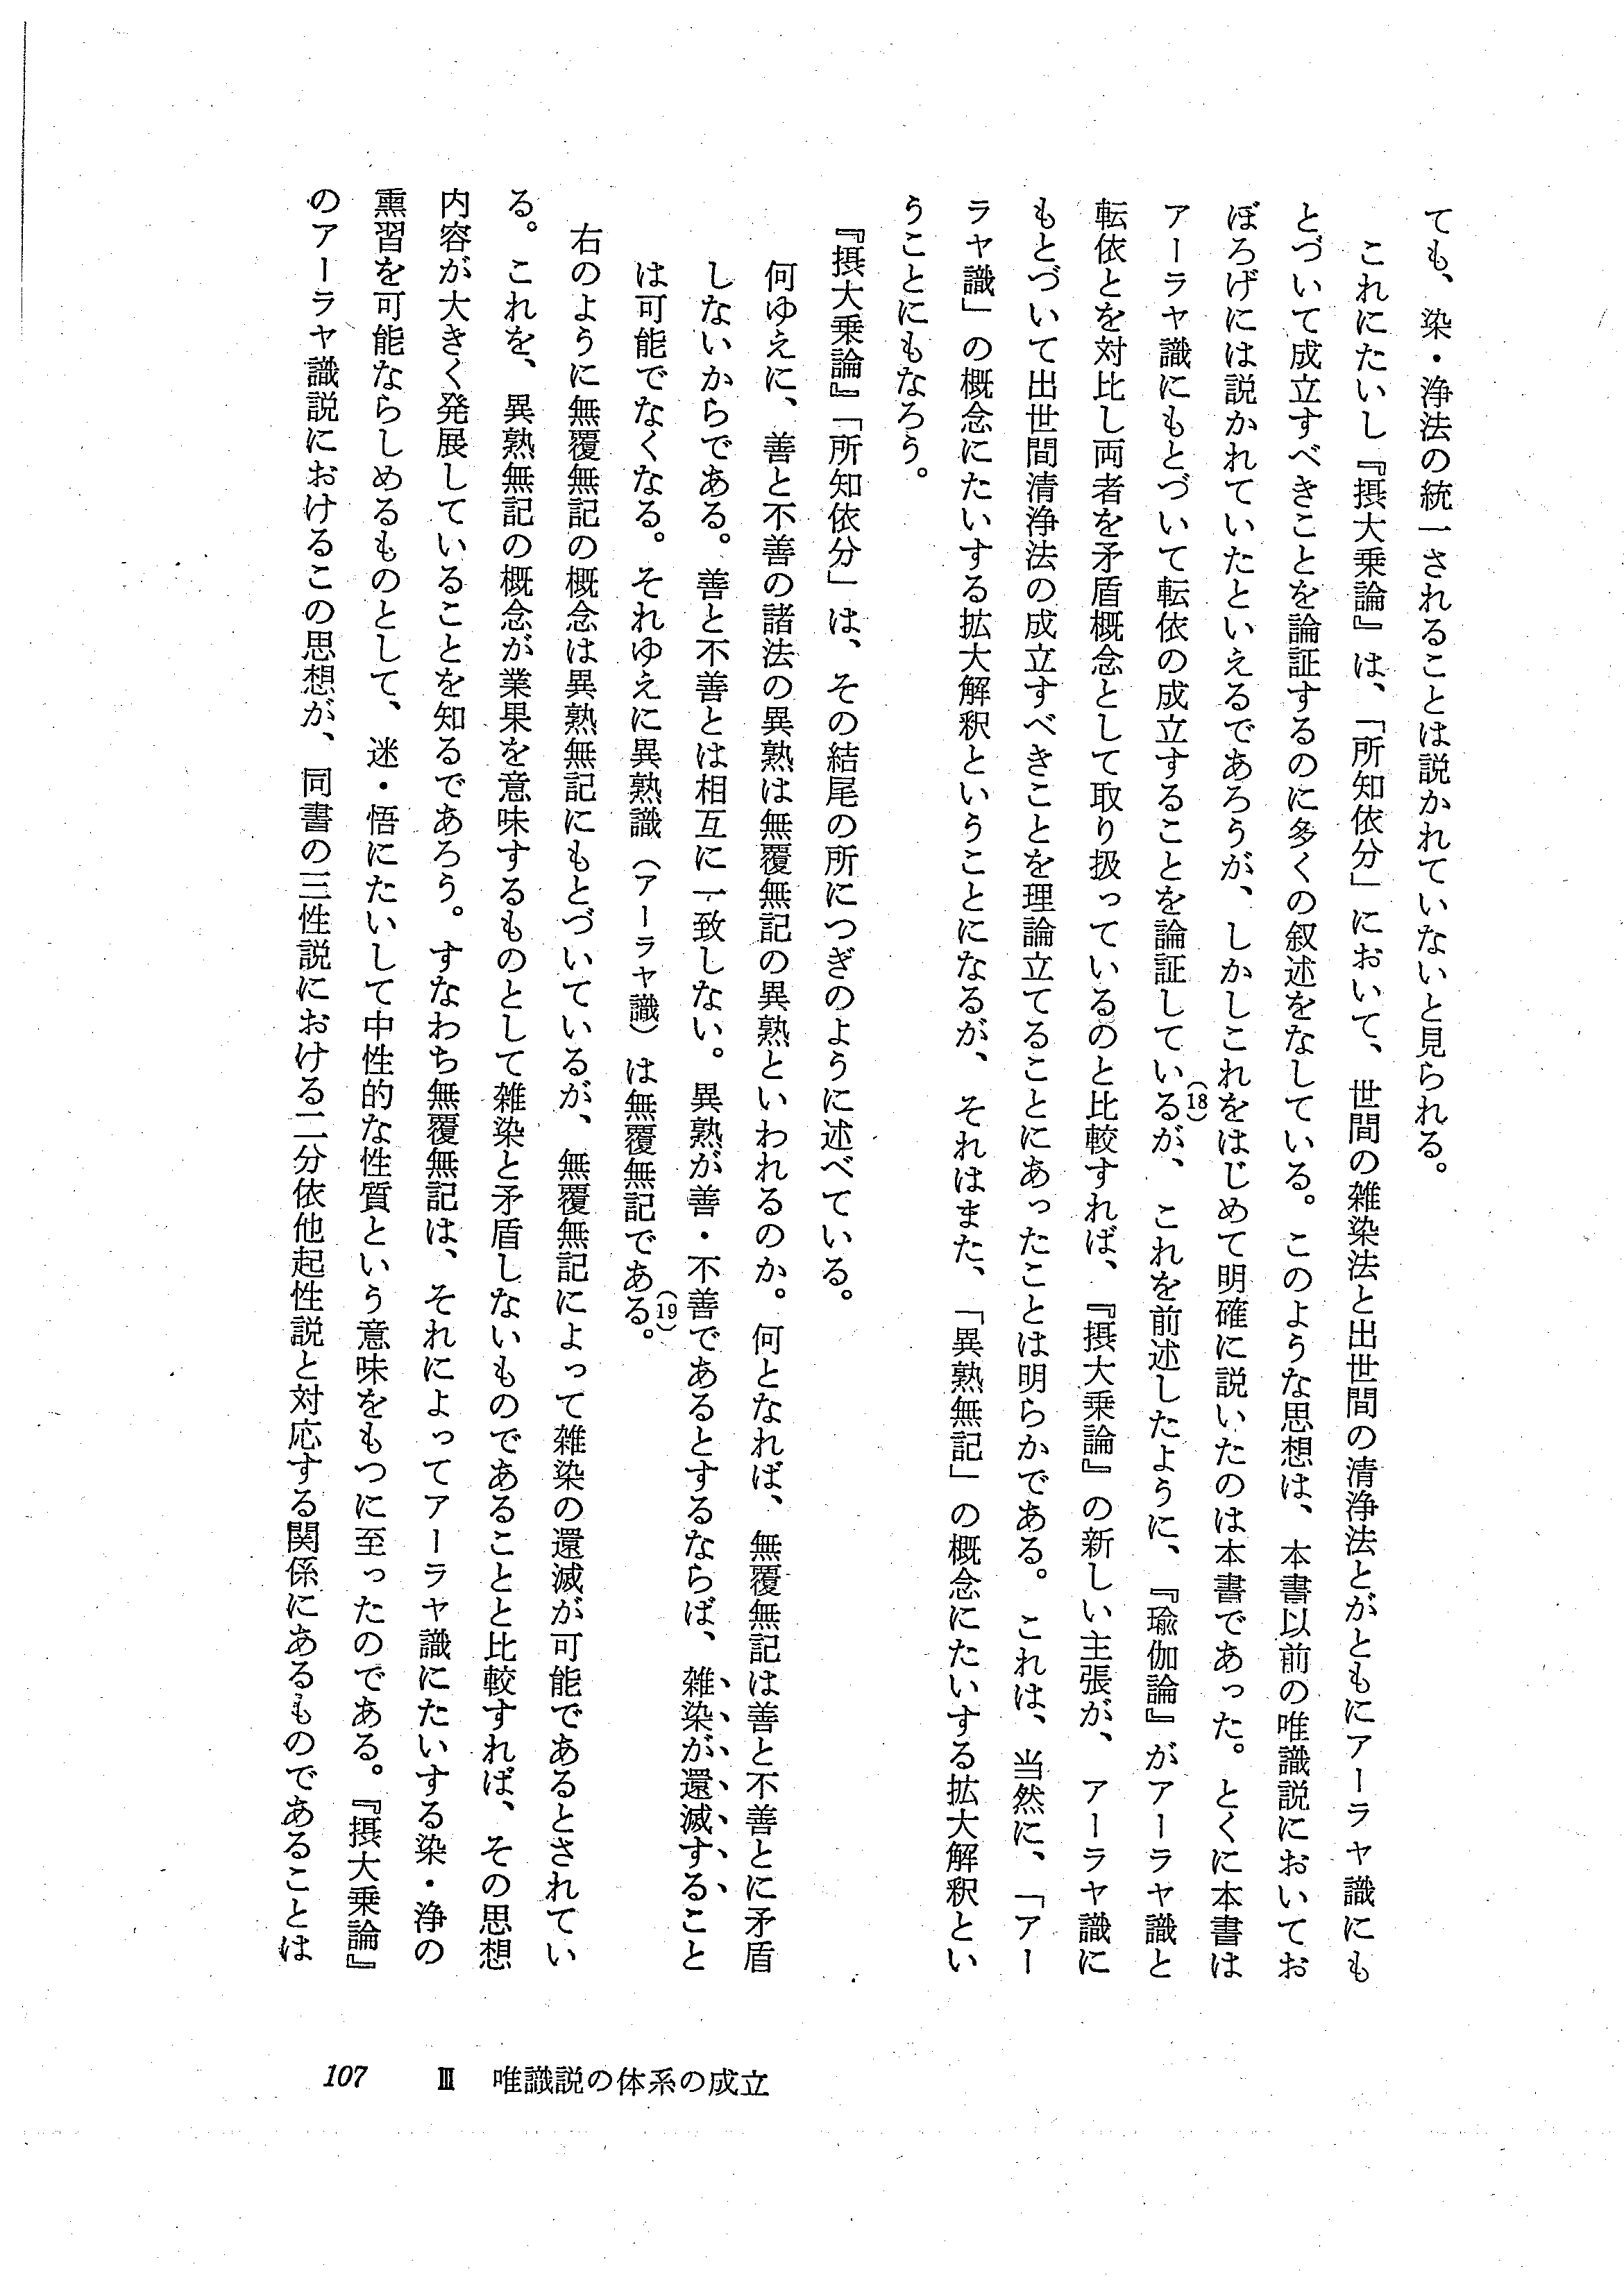 ても、染・浄法の統一されることは説かれていないと見られる。
これにたいし『摂大乗論』は、「所知依分」において、世間の雑染法と出世間の清浄法とがともにアーラヤ識にも
とづいて成立すべきことを論証するのに多くの叙述をなしている。このような思想は、本書以前の唯識説においてお
ぼろげには説かれていたといえるであろうが、しかしこれをはじめて明確に説いたのは本書であった。とくに本書は
アーラヤ識にもとづいて転依の成立することを論証しているが、(18)これを前述したように、『瑜伽論』がアーラヤ識と
転依とを対比し両者を矛盾概念として取り扱っているのと比較すれば、『摂大乗論』の新しい主張が、アーラヤ識に
もとづいて出世間清浄法の成立すべきことを理論立てることにあったことは明らかである。これは、当然に、「アー
ラヤ識」の概念にたいする拡大解釈ということになるが、それはまた、「異熟無記」の概念にたいする拡大解釈とい
うことにもなろう。
『摂大乗論』「所知依分」は、その結尾の所につぎのように述べている。
何ゆえに、善と不善の諸法の異熟は無覆無記の異熟といわれるのか。何となれば、無覆無記は善と不善とに矛盾
しないからである。善と不善とは相互に一致しない。異熟が善・不善であるとするならば、雑染が還滅すること
は可能でなくなる。それゆえに異熟識（アーラヤ識）は無覆無記である。(19)
右のように無覆無記の概念は異熟無記にもとづいているが、無覆無記によって雑染の還滅が可能であるとされてい
る。これを、異熟無記の概念が業果を意味するものとして雑染と矛盾しないものであることと比較すれば、その思想
内容が大きく発展していることを知るであろう。すなわち無覆無記は、それによってアーラヤ識にたいする染・浄の
熏習を可能ならしめるものとして、迷・悟にたいして中性的な性質という意味をもつに至ったのである。『摂大乗論』
のアーラヤ識説におけるこの思想が、同書の三性説における二分依他起性説と対応する関係にあるものであることは
107 Ⅲ 唯識説の体系の成立